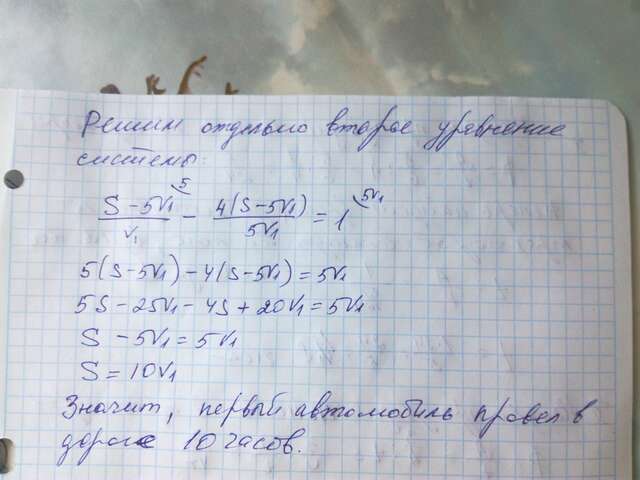 Решим отдельно второе уравнение
системы:
(S-5V₁)/V₁ ⁵ - 4(S-5V₁)/5V₁ = 1 ⁵ⱽ¹
5(S-5V₁)-4(S-5V₁)=5V₁
5S-25V₁-4S+20V₁=5V₁
S-5V₁=5V₁
S=10V₁
Значит, первый автомобиль провел в
дороге 10 часов.